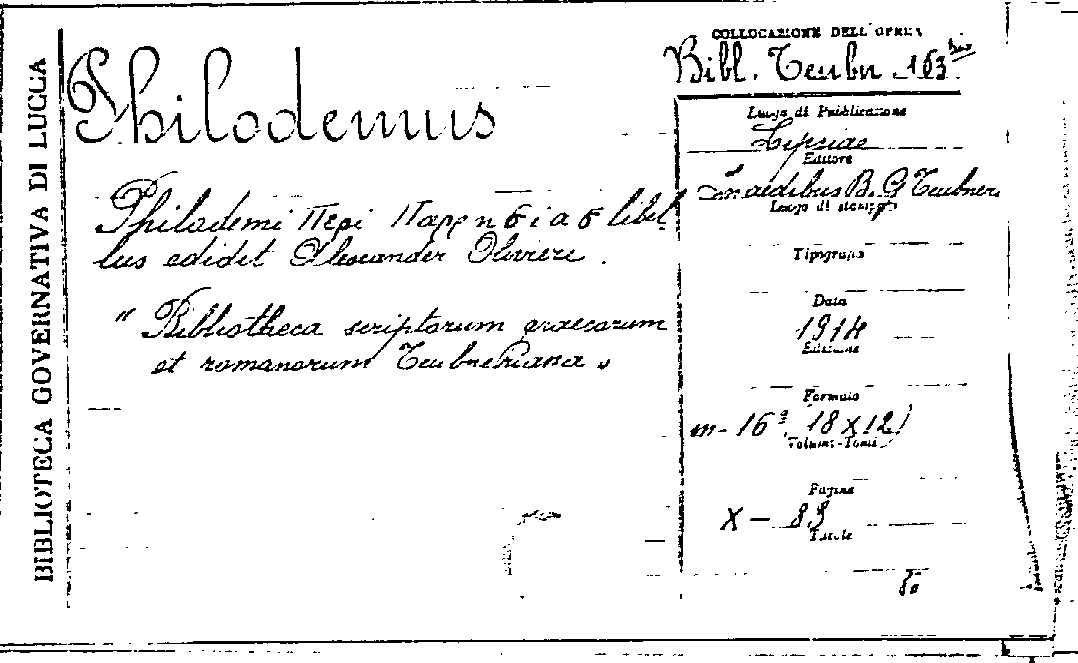 BIBLIOTECA GOVERNATIVA DI LUCCA
Philodemus
Philodemi Περι Παρρησιας libel-
lus edidit Alexander Olivieri.
" Bibliotheca scriptorum graecorum
et romanorum Teubneriana "
COLLOCAZIONE DELL'OPERA
Bibl. Teubn. 163
Luogo di Pubblicazione
Lipsiae
Editore
in aedibus B. G. Teubneri
Luogo di stampa
Tipografo
Data
1914
Edizione
Formato
in-16° (18 x 12)
Volumi-Tomi
Pagine
X — 83